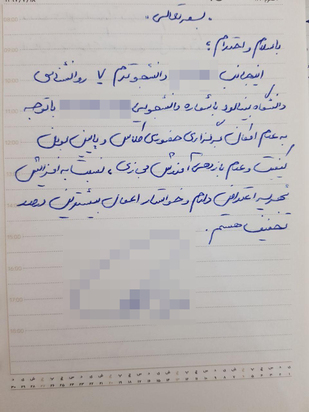 بسمه تعالی
با سلام و احترام ؛
اینجانب دانشجو ترم ۷ روانشناسی
دانشگاه با شماره دانشجویی با توجه
به عدم امکان برگزاری حضوری کلاس و پایین بودن
کیفیت و عدم بازدهی آموزش مجازی ، نسبت به افزایش
شهریه اعتراض دارم و خواستار اعمال بیشترین درصد
تخفیف هستم .